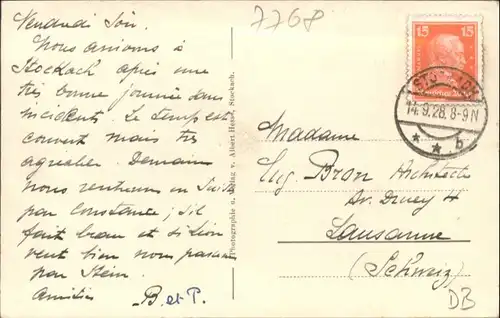 7768
Vendredi Soir.
Nous arrivons à
Stockach après une
très bonne journée sans
incidents. Le temps est
couvert mais très
agréable. Demain
nous rentrerons en Suisse
par Constance; s'il
fait beau et si Lion
veut bien nous passerons
par Stein.
Amitiés
B. et P.
Photographie u. Verlag v. Albert Hotz, Stockach.
15 15
14.9.28. 8-9 N
* * b
Madame
Eug. Bron Architecte
Av. Druey 4
Lausanne
(Schweiz)
DB